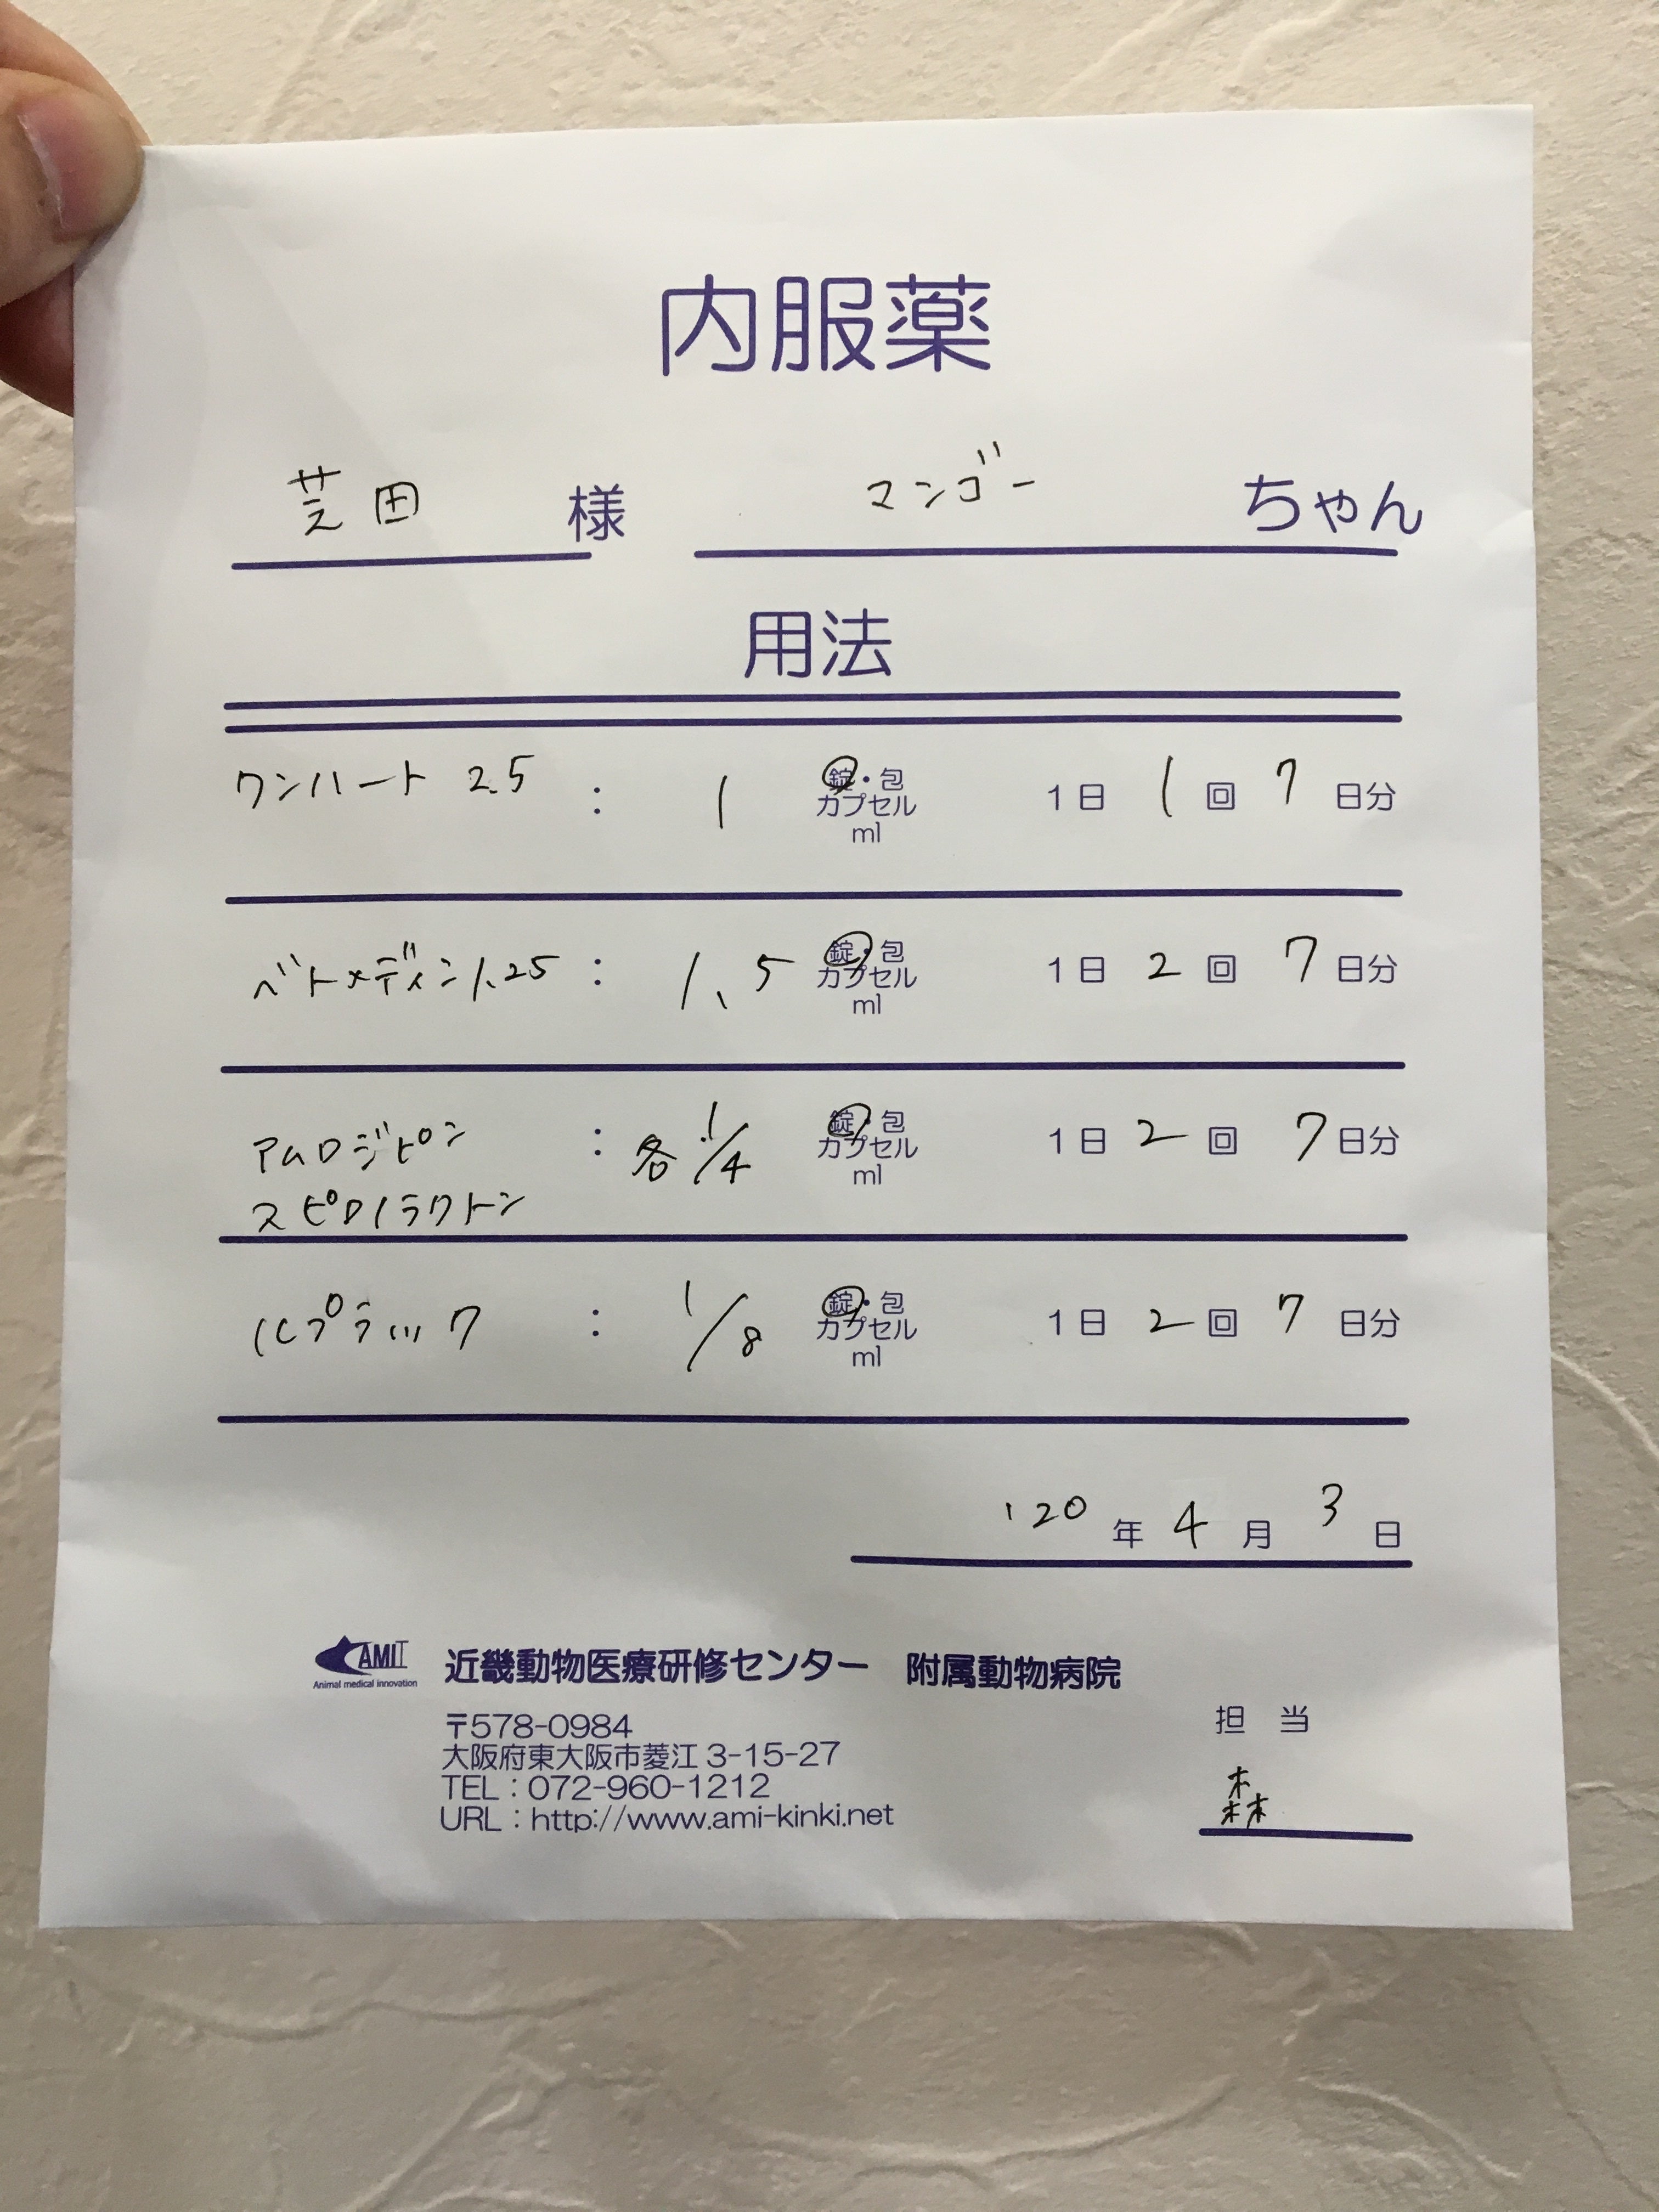 内服薬
芝田 様 マンゴー ちゃん
用法
ワンハート 2.5 : 1 錠・包 1日 1 回 7 日分
カプセル
ml
ベトメディン 1.25 : 1.5 錠・包 1日 2 回 7 日分
カプセル
ml
アムロジピン : 各 1/4 錠・包 1日 2 回 7 日分
カプセル
ml
スピロノラクトン
ルプラック : 1/8 錠・包 1日 2 回 7 日分
カプセル
ml
'20 年 4 月 3 日
AMI
Animal medical innovation
近畿動物医療研修センター 附属動物病院
〒578-0984
大阪府東大阪市菱江 3-15-27
TEL:072-960-1212
URL:http://www.ami-kinki.net
担 当
森